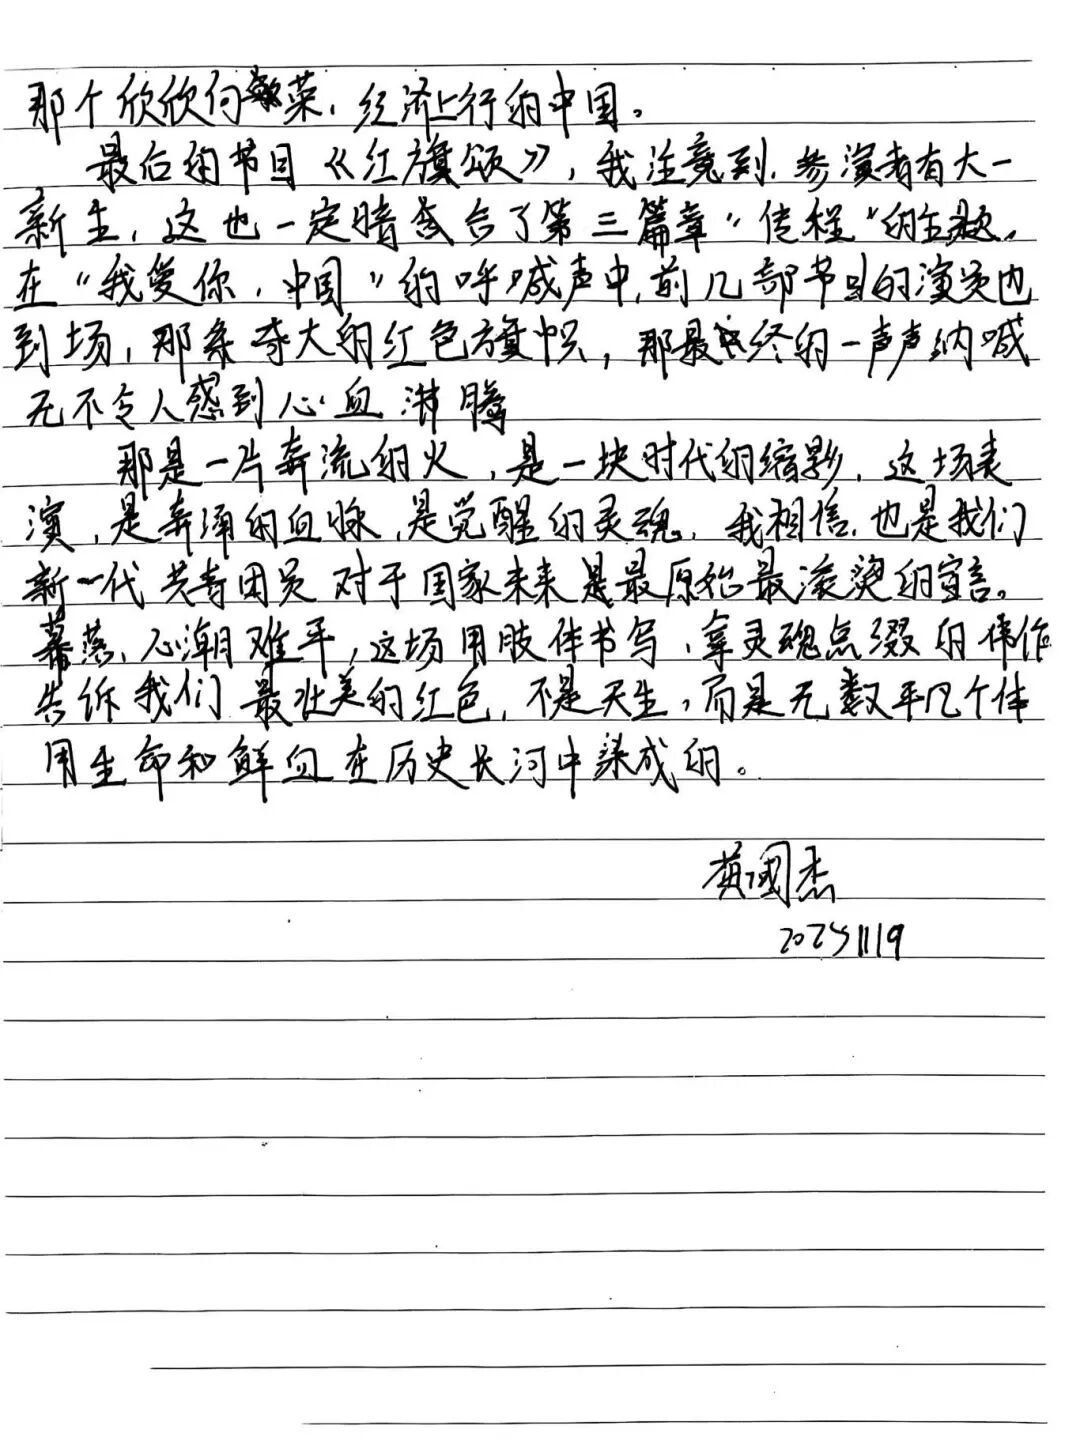 那个欣欣向荣，经济上行的中国。
最后的节目《红旗颂》，我注意到，参演者有大一
新生，这也一定暗含合了第三篇章“传程”的主题。
在“我爱你，中国”的呼喊声中，前几部节目的演员也
到场，那条夸大的红色旗帜，那最终的一声声纳喊
无不令人感到心血沸腾
那是一片奔流的火，是一块时代的缩影，这场表
演，是奔涌的血脉，是觉醒的灵魂，我相信，也是我们
新一代共青团员对于国家未来是最原始最滚烫的宣言。
幕落，心潮难平，这场用肢体书写，拿灵魂点缀的伟作
告诉我们最壮美的红色，不是天生，而是无数平凡个体
用生命和鲜血在历史长河中染成的。
黄國杰
20251119